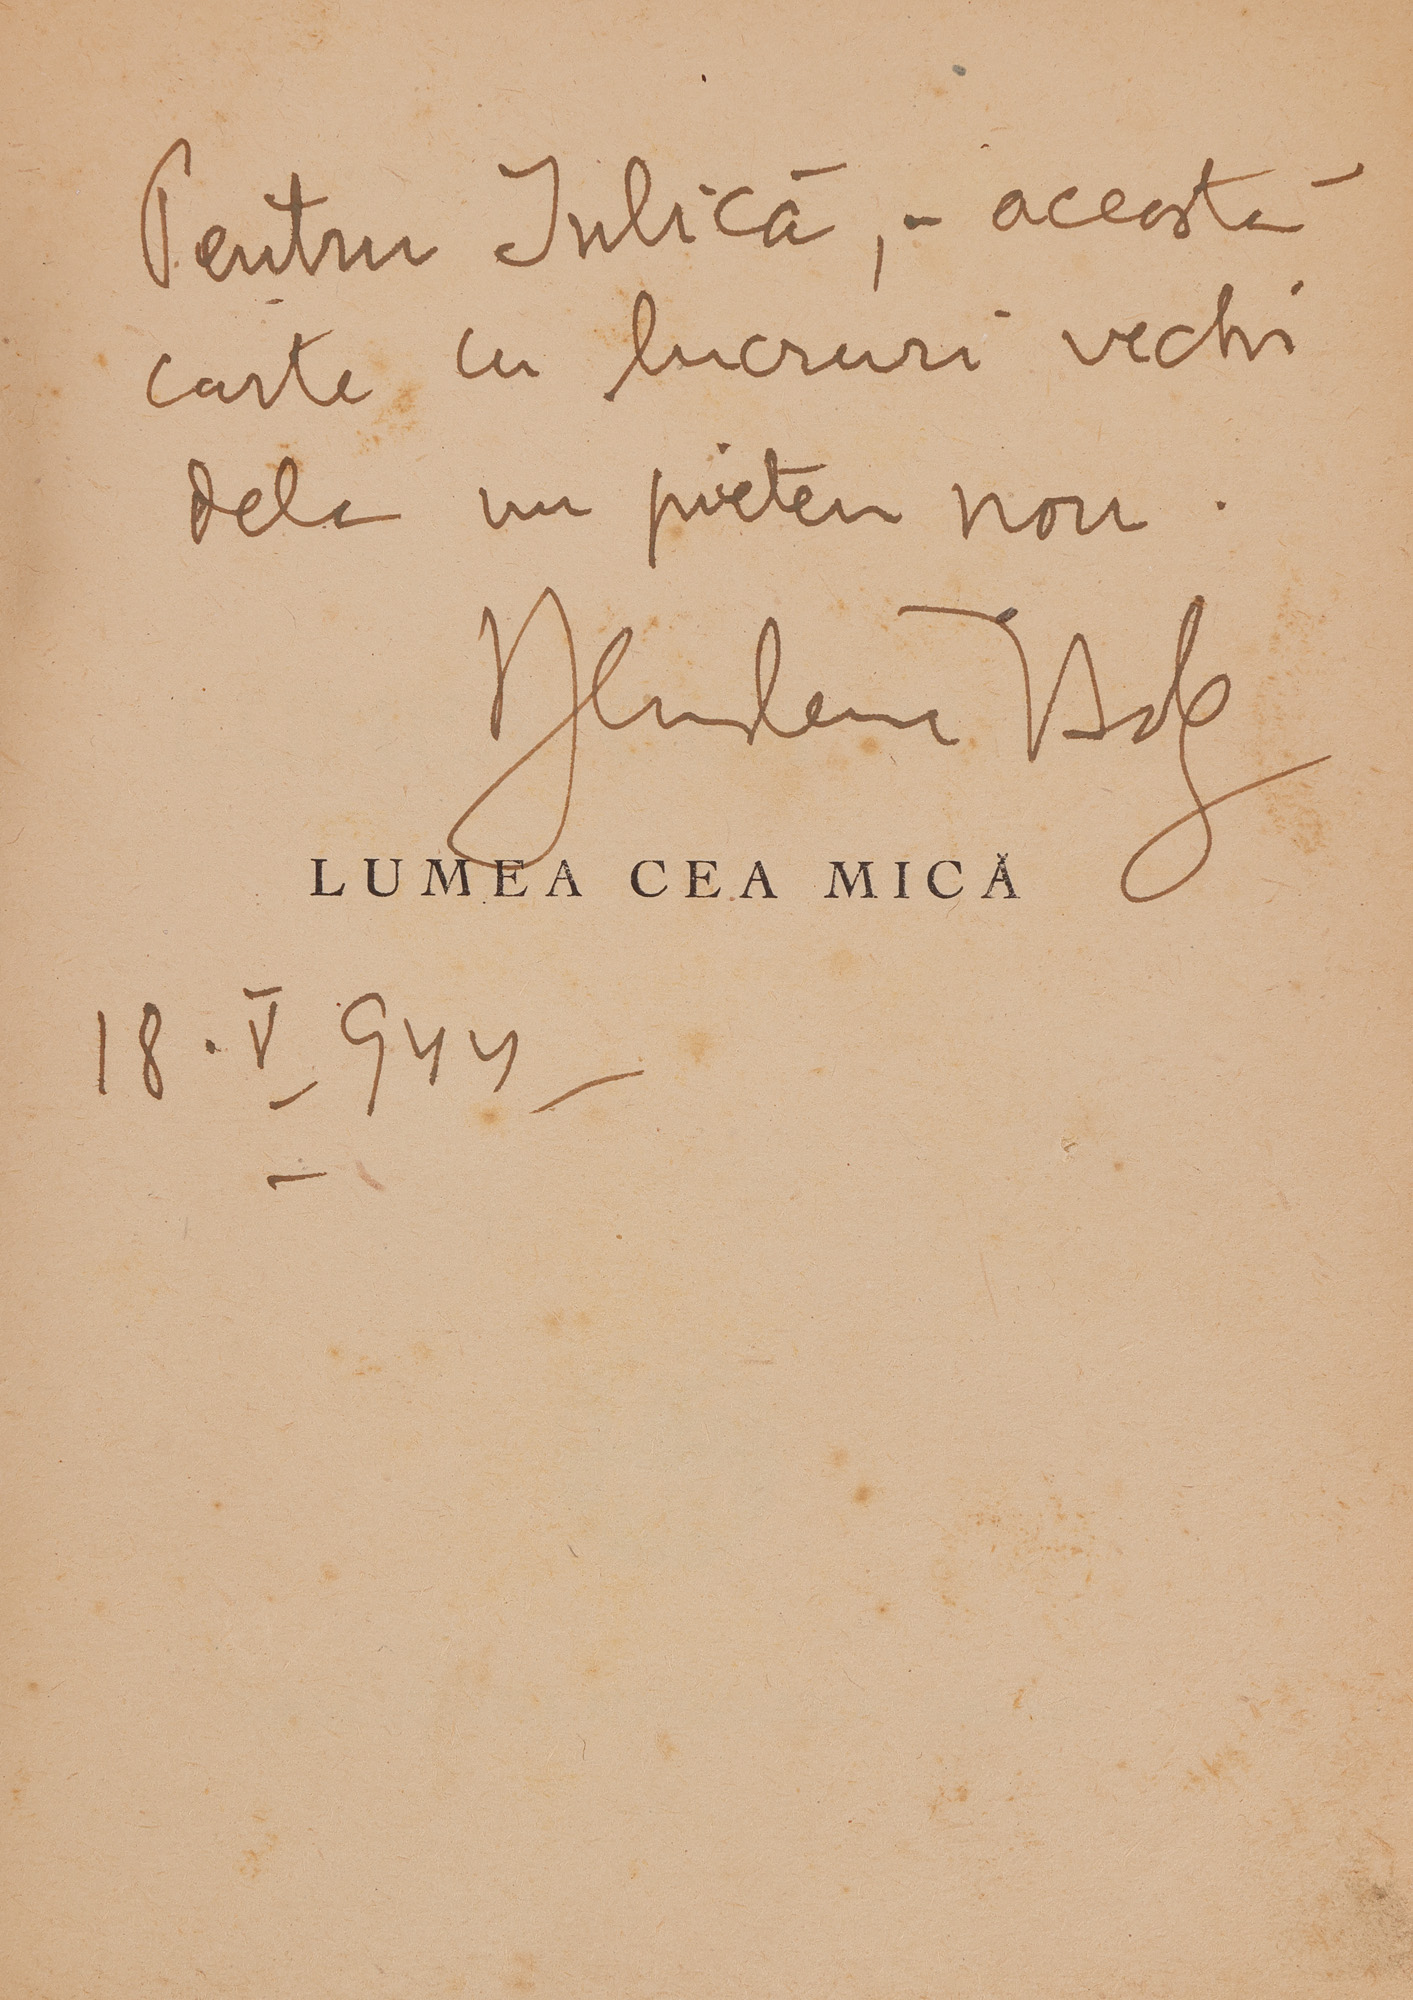 Pentru Iulică, - această
carte cu lucruri vechi
dela un prieten nou.
LUMEA CEA MICĂ
18.V.944